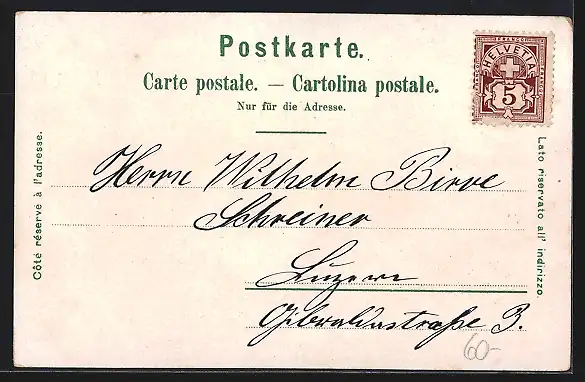 Postkarte.
Carte postale. — Cartolina postale.
Nur für die Adresse.
FRANCO
HELVETIA
5
Côté réservé à l'adresse.
Lato riservato all' indirizzo.
Herrn Wilhelm Birve
Schreiner
Luzern
Gibraltarstraße 3.
60-